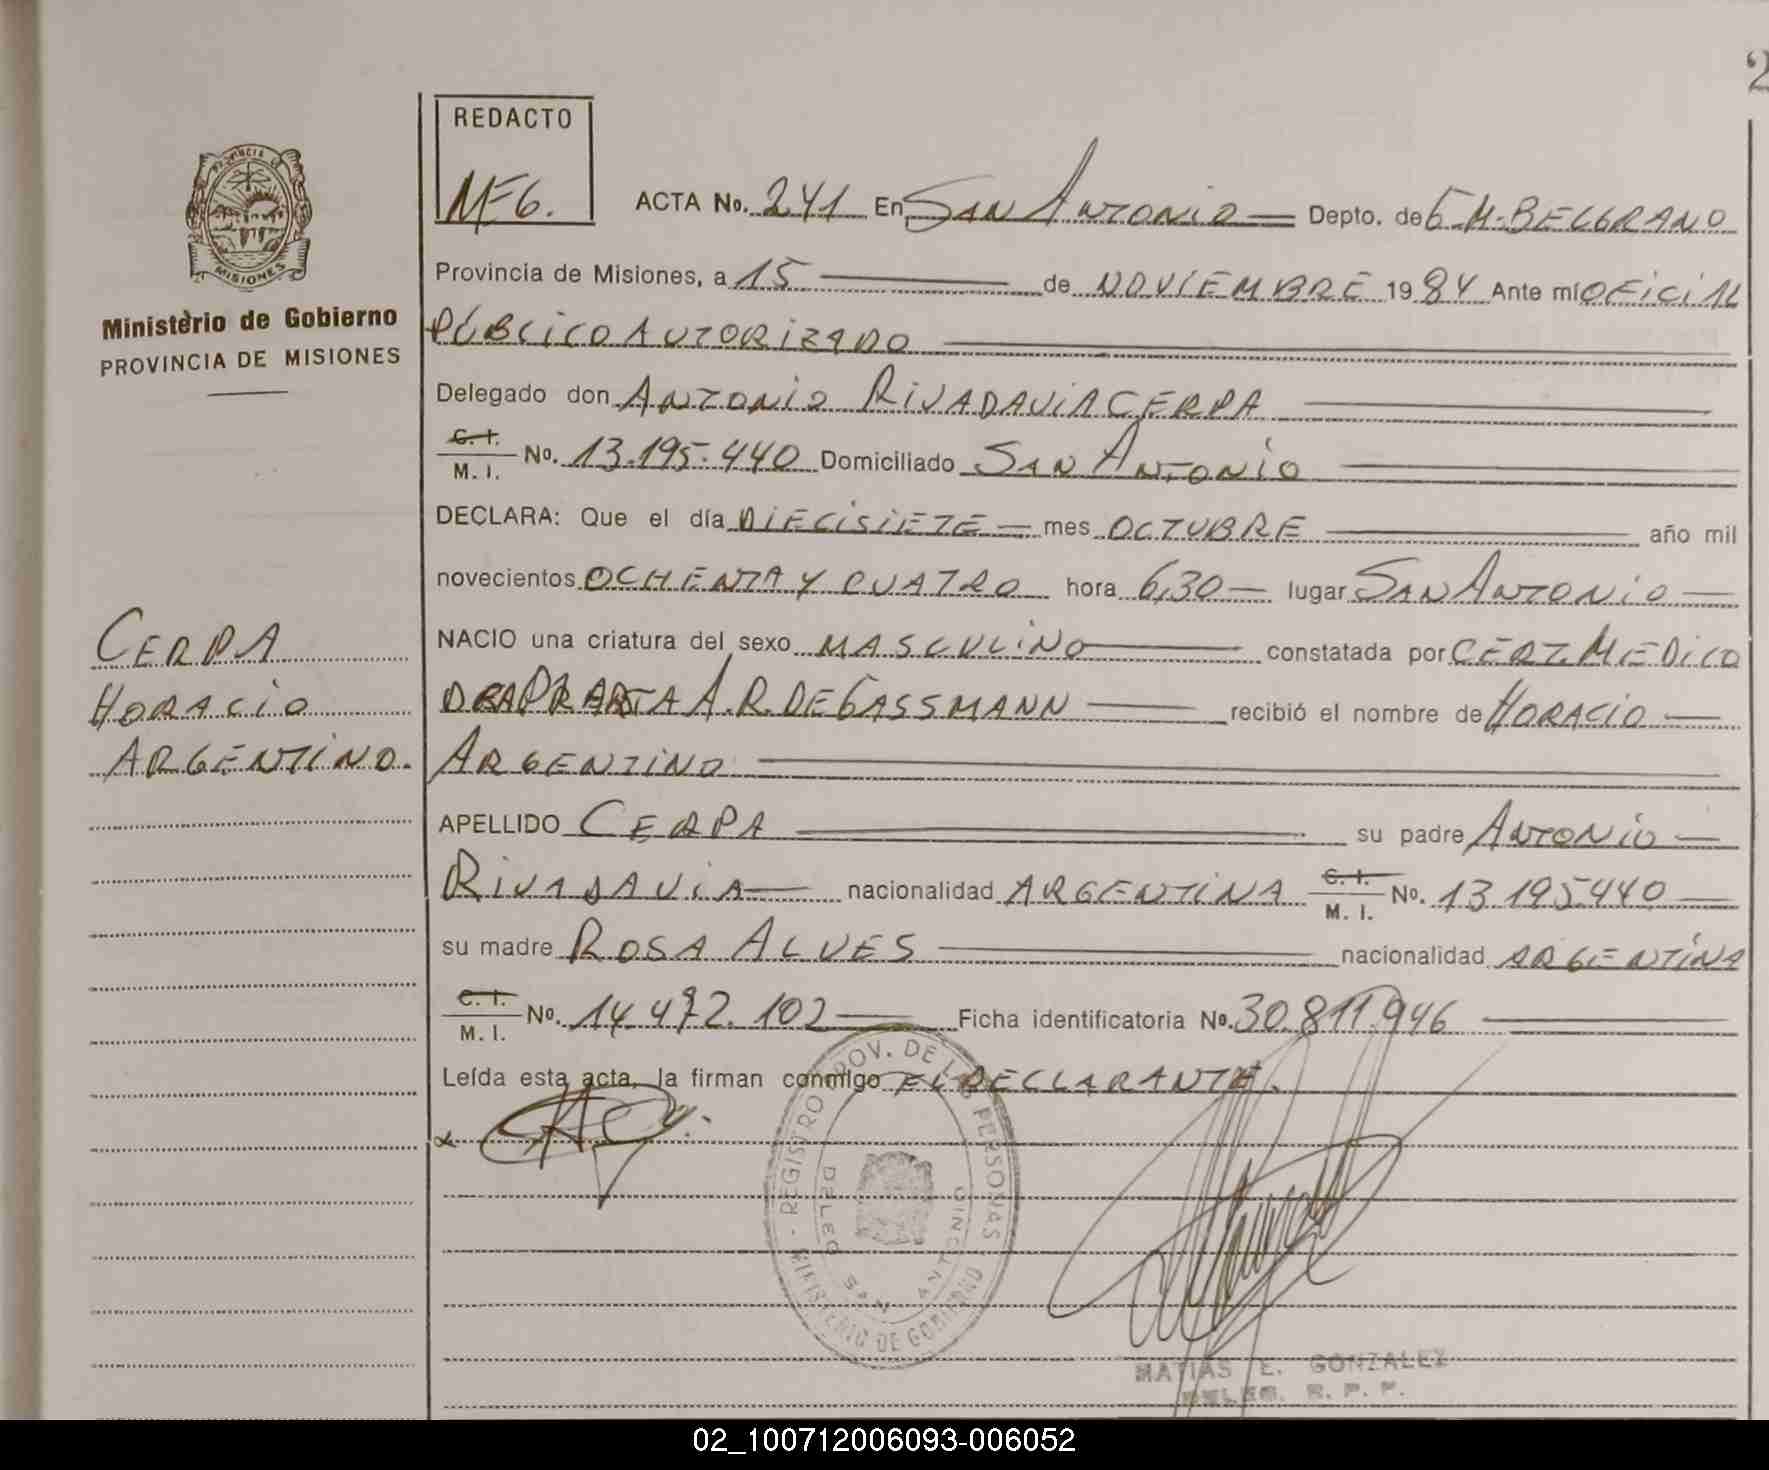 2
REDACTO
MEG.
ACTA No. 241 En SAN ANTONIO Depto. de G. M. BELGRANO
Provincia de Misiones, a 15 de NOVIEMBRE 1984 Ante mí OFICIAL
PÚBLICO AUTORIZADO
Delegado don ANTONIO RIVADAVIA CERPA
C. I. / M. I. No. 13.195.440 Domiciliado SAN ANTONIO
DECLARA: Que el día DIECISIETE mes OCTUBRE año mil
novecientos OCHENTA Y CUATRO hora 6,30 lugar SAN ANTONIO
NACIO una criatura del sexo MASCULINO constatada por CERT. MEDICO
DRA A. R. DE GASSMANN recibió el nombre de HORACIO
ARGENTINO
APELLIDO CERPA su padre ANTONIO
RIVADAVIA nacionalidad ARGENTINA C. I. / M. I. No. 13.195.440
su madre ROSA ALVES nacionalidad ARGENTINA
C. I. / M. I. No. 14.472.102 Ficha identificatoria No. 30.811.946
Leída esta acta, la firman conmigo EL DECLARANTE.
PROVINCIA DE
MISIONES
Ministerio de Gobierno
PROVINCIA DE MISIONES
CERPA
HORACIO
ARGENTINO.
REGISTRO PROV. DE LAS PERSONAS
MINISTERIO DE GOBIERNO
DELEG. SAN ANTONIO
MATIAS E. GONZALEZ
DELEG. R. P. P.
02_100712006093-006052